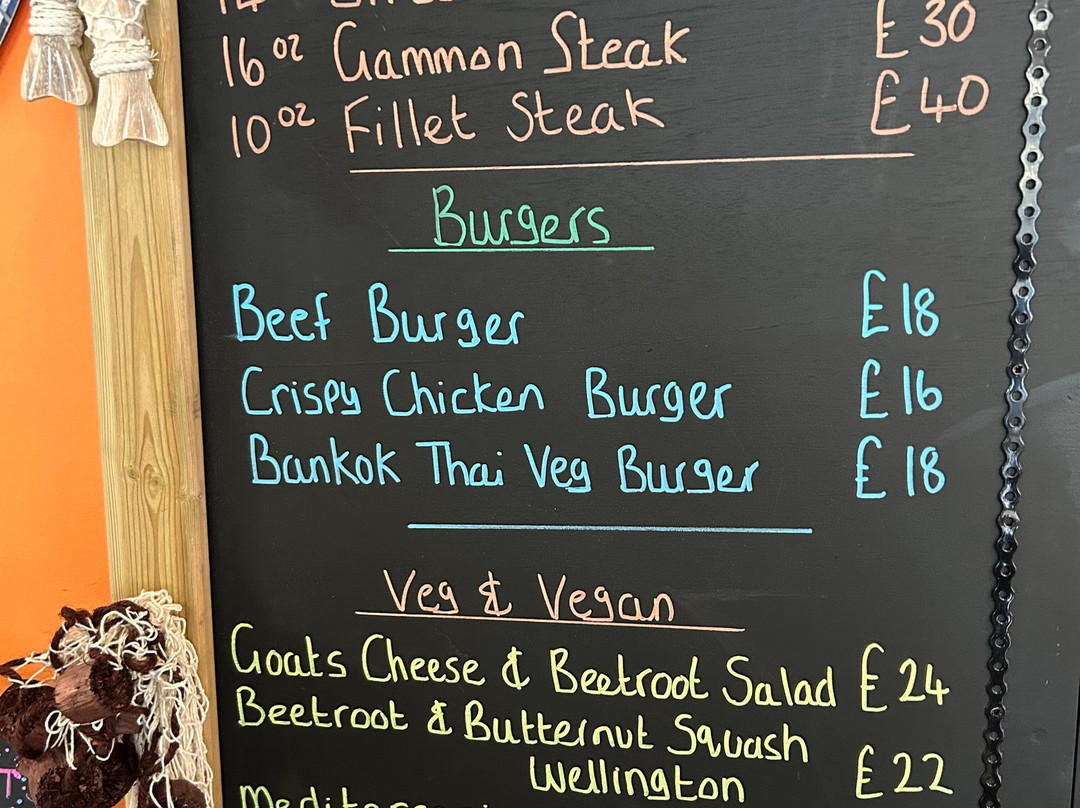 16oz Gammon Steak £30
10oz Fillet Steak £40
Burgers
Beef Burger £18
Crispy Chicken Burger £16
Bankok Thai Veg Burger £18
Veg & Vegan
Goats Cheese & Beetroot Salad £24
Beetroot & Butternut Squash
Wellington £22